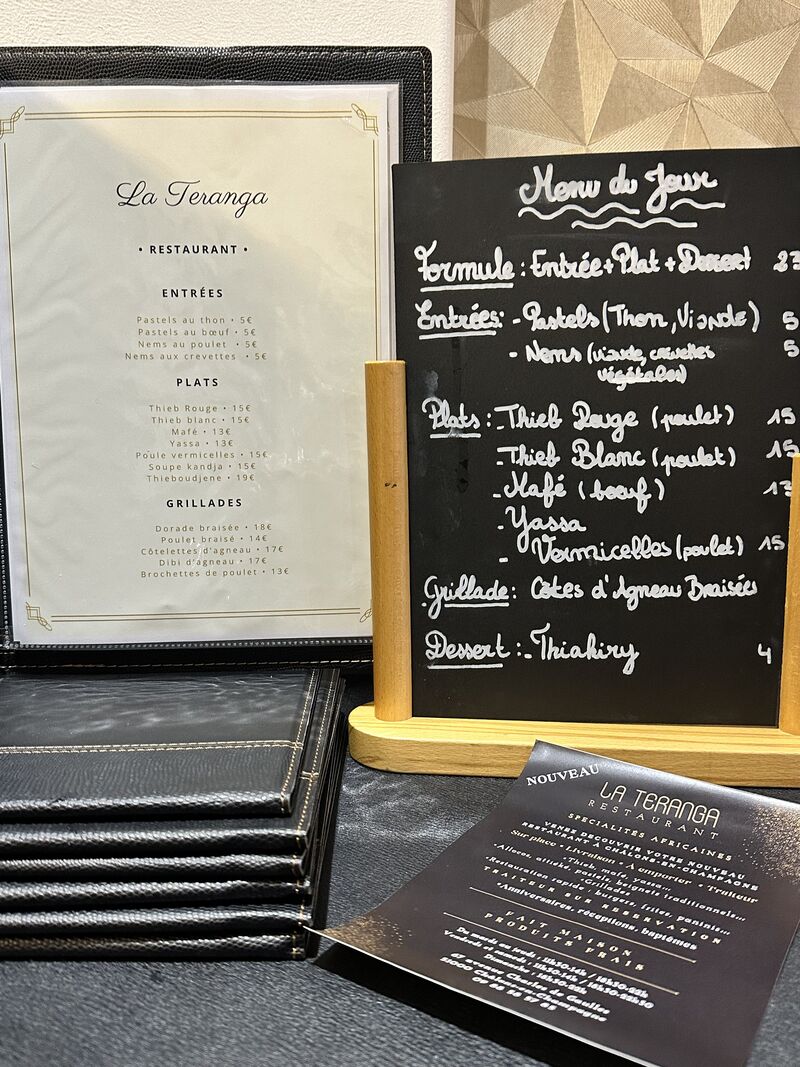 La Teranga
• RESTAURANT •
ENTRÉES
Pastels au thon • 5€
Pastels au bœuf • 5€
Nems au poulet • 5€
Nems aux crevettes • 5€
PLATS
Thieb Rouge • 15€
Thieb blanc • 15€
Mafé • 13€
Yassa • 13€
Poule vermicelles • 15€
Soupe kandja • 15€
Thieboudjene • 19€
GRILLADES
Dorade braisée • 18€
Poulet braisé • 14€
Côtelettes d'agneau • 17€
Dibi d'agneau • 17€
Brochettes de poulet • 13€
Menu du Jour
Formule : Entrée + Plat + Dessert 23
Entrées: - Pastels (Thon, Viande) 5
- Nems (viande, crevettes 5
végétales)
Plats : - Thieb Rouge (poulet) 15
- Thieb Blanc (poulet) 15
- Mafé (bœuf) 13
- Yassa
- Vermicelles (poulet) 15
Grillade: Côtes d'Agneau Braisées
Dessert : - Thiakiry 4
NOUVEAU
LA TERANGA
RESTAURANT
SPECIALITÉS AFRICAINES
VENEZ DECOUVRIR VOTRE NOUVEAU
RESTAURANT À CHÂLONS-EN-CHAMPAGNE
Sur place • Livraison • À emporter • Traiteur
• Thieb, mafé, yassa...
• Alloco, attiéké, pastels, beignets traditionnels...
• Grillades
• Restauration rapide : burgers, frites, paninis...
TRAITEUR SUR RESERVATION
• Anniversaires, réceptions, baptêmes
FAIT MAISON
PRODUITS FRAIS
De mardi au jeudi : 11h30-14h / 18h30-22h
Vendredi et samedi : 11h30-14h / 18h30-22h30
Dimanche : 18h30-22h
47 avenue Charles de Gaulles
51000 Châlons-en-Champagne